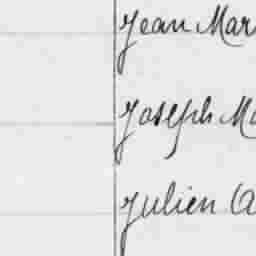 Jean Mar
Joseph Ma
Julien A